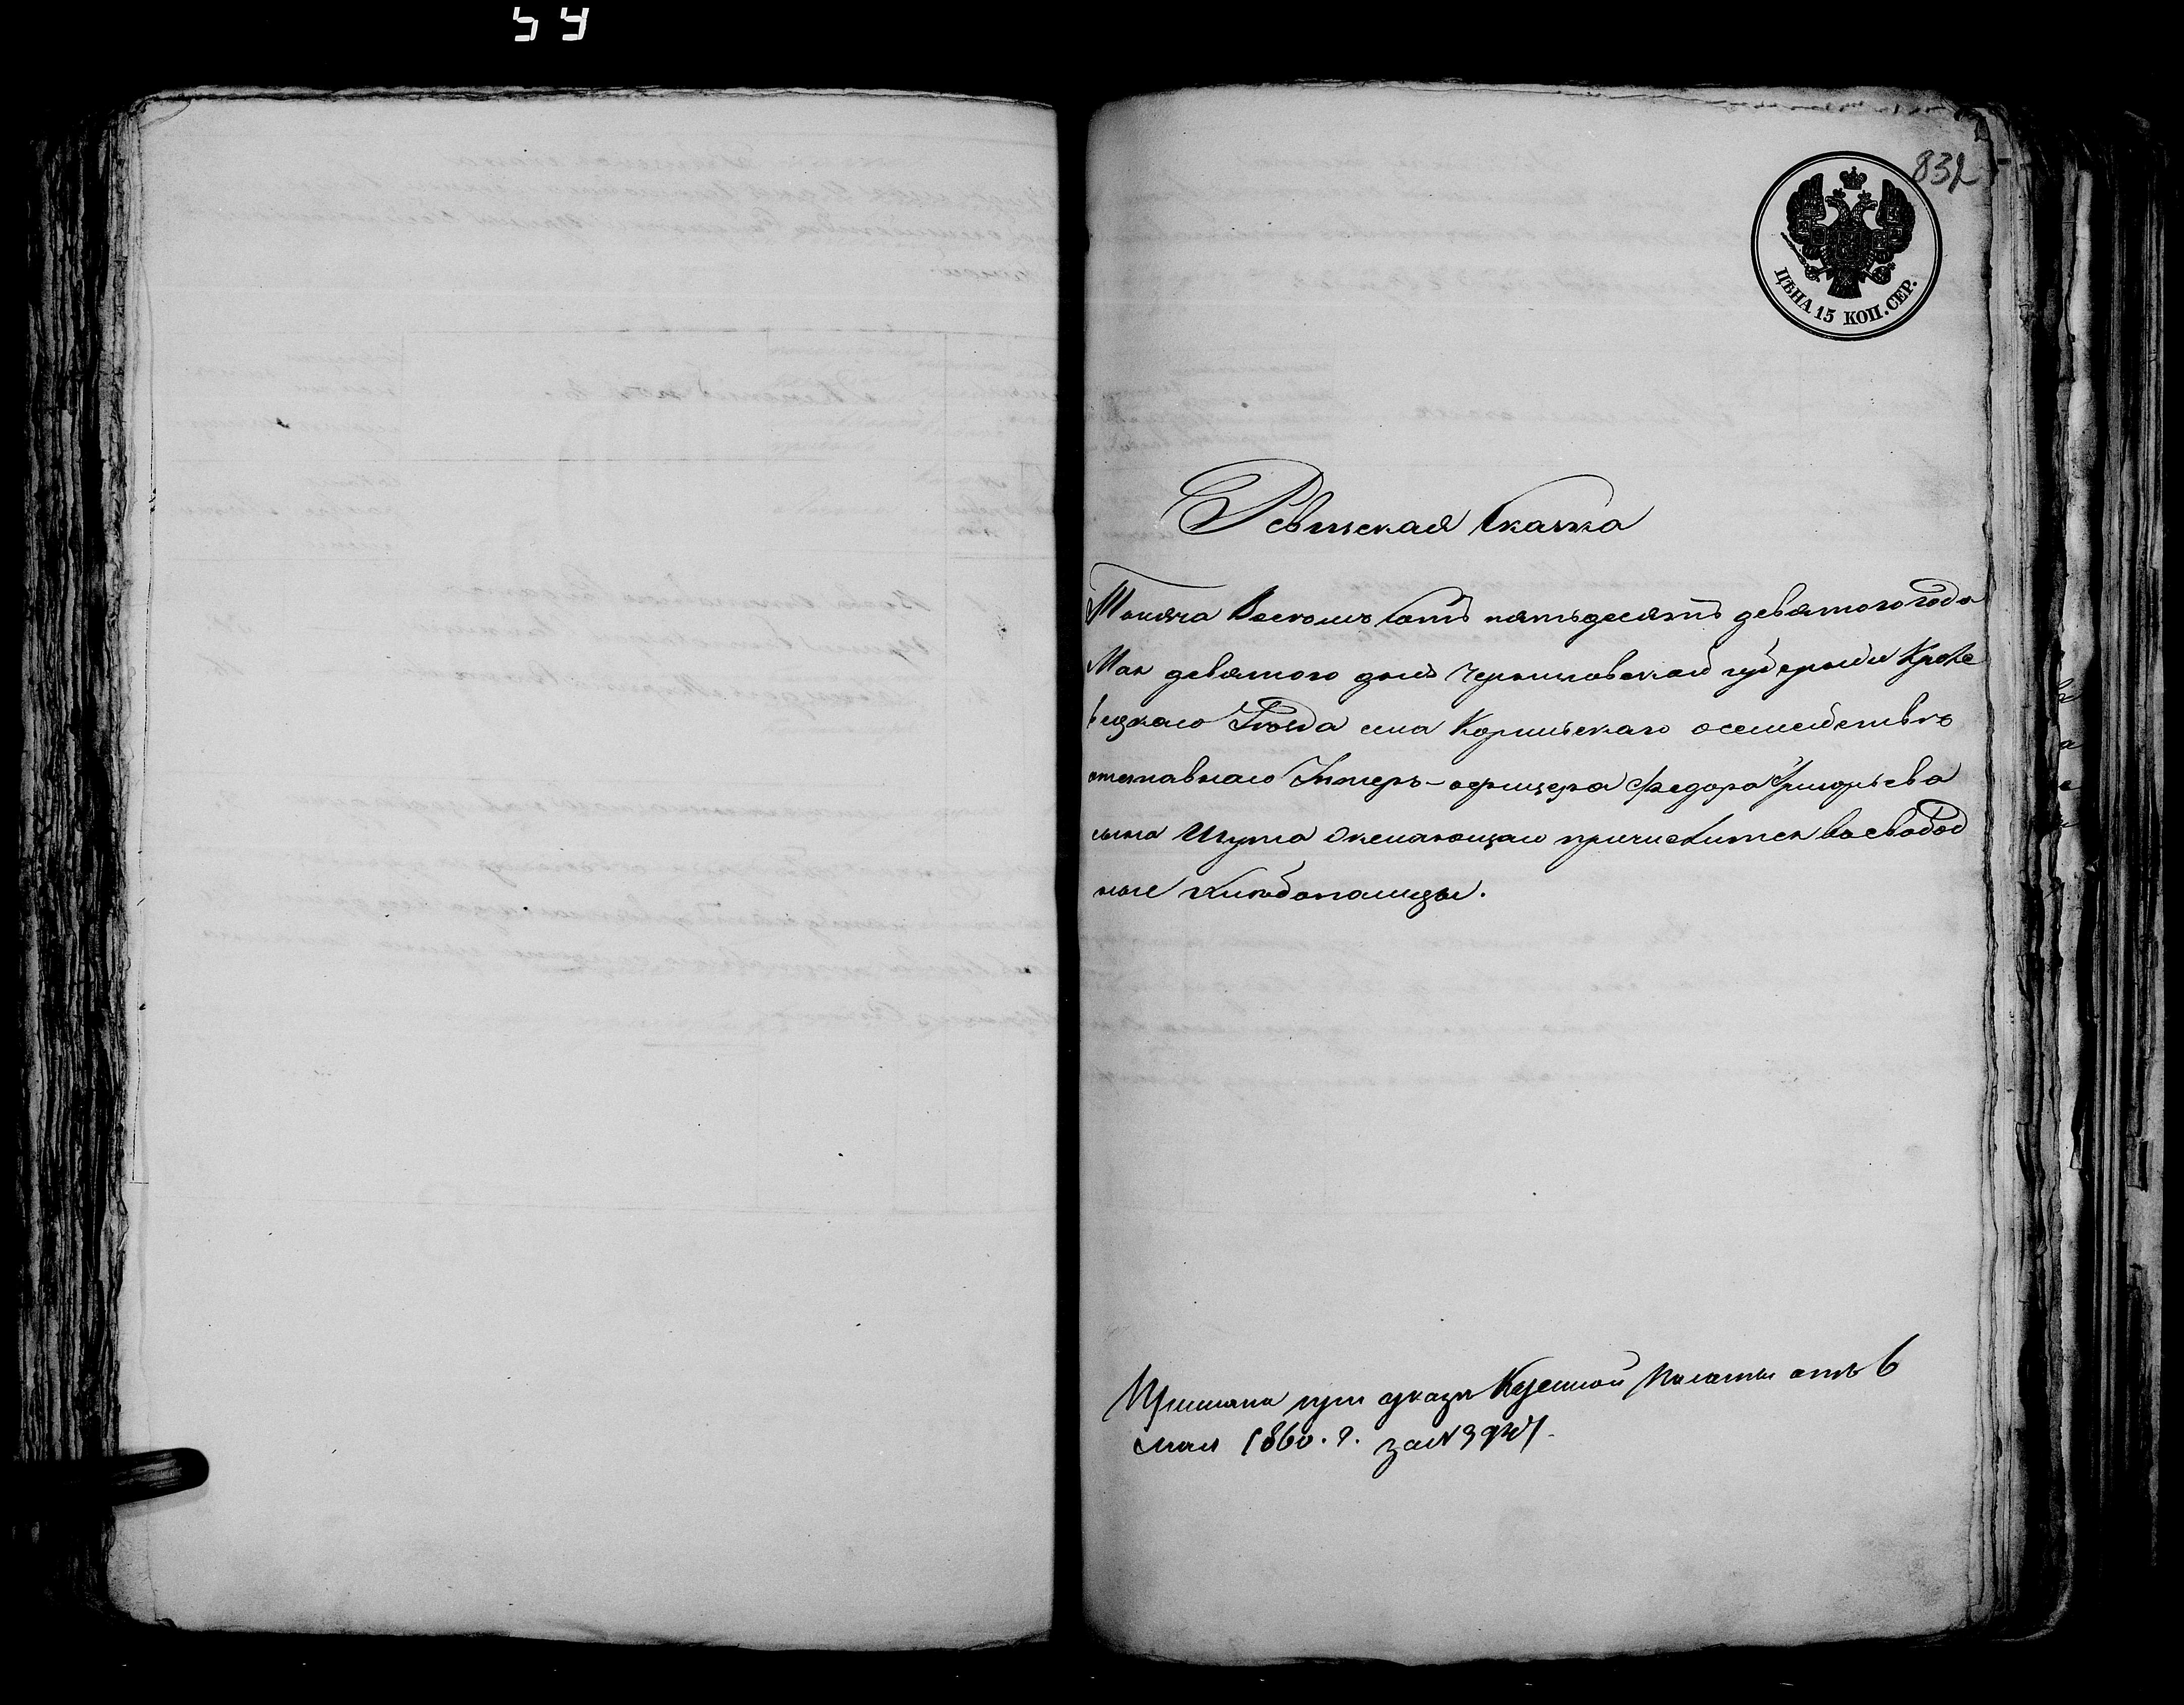 54
832
ЦѢНА 15 КОП. СЕР.
Ревизская Сказка
Тысяча Восемь сотъ пятьдесятъ девятого года
Мая девятого дня Черниговской губерніи Кроле
вецкаго Уѣзда села о семействѣ
отставнаго Унтеръ-офицера Федора Григорьева
сына Шута желающаго причислится въ свобод
ные хлѣбопашцы.
при указѣ Казенной Палаты отъ 6
мая 1860. г. за №